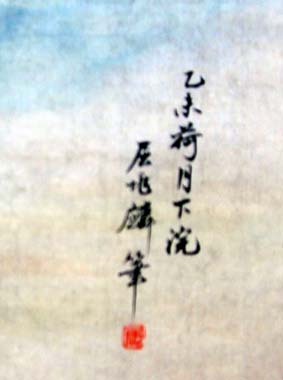 乙未荷月下浣
屈兆麟筆